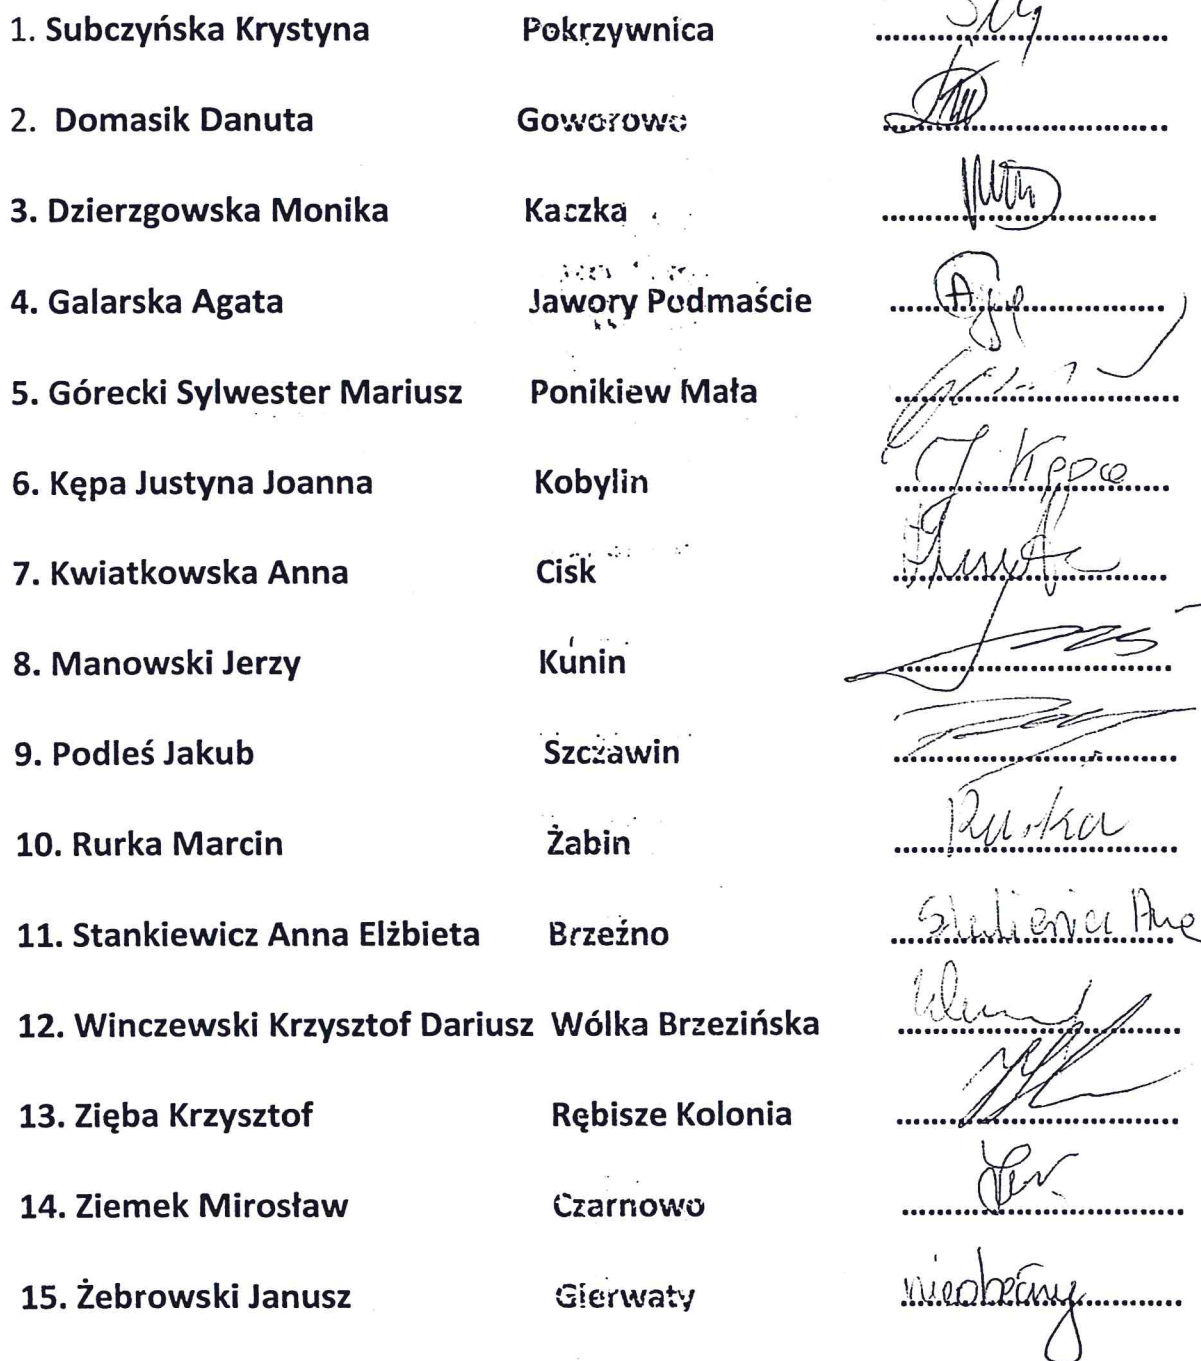 1. Subczyńska Krystyna Pokrzywnica
2. Domasik Danuta Goworowo
3. Dzierzgowska Monika Kaczka
4. Galarska Agata Jawory Podmaście
5. Górecki Sylwester Mariusz Ponikiew Mała
6. Kępa Justyna Joanna Kobylin J. Kępa
7. Kwiatkowska Anna Cisk
8. Manowski Jerzy Kunin
9. Podleś Jakub Szczawin
10. Rurka Marcin Żabin Rurka
11. Stankiewicz Anna Elżbieta Brzeźno
12. Winczewski Krzysztof Dariusz Wólka Brzezińska
13. Zięba Krzysztof Rębisze Kolonia
14. Ziemek Mirosław Czarnowo
15. Żebrowski Janusz Gierwaty nieobecny